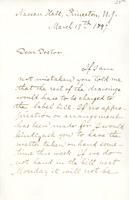 Nassau Hall, Princeton, N.J.
March 17th 189
Dear Doctor
If I am
not mistaken you told me
that the rest of the drawings
would have to be charged to
the label bill. If no appro-
priation or arrangement
has been made for I would
kindly ask you to have the
matter taken in hand some
time this week, if
not hand in the bill next
Monday it will not be